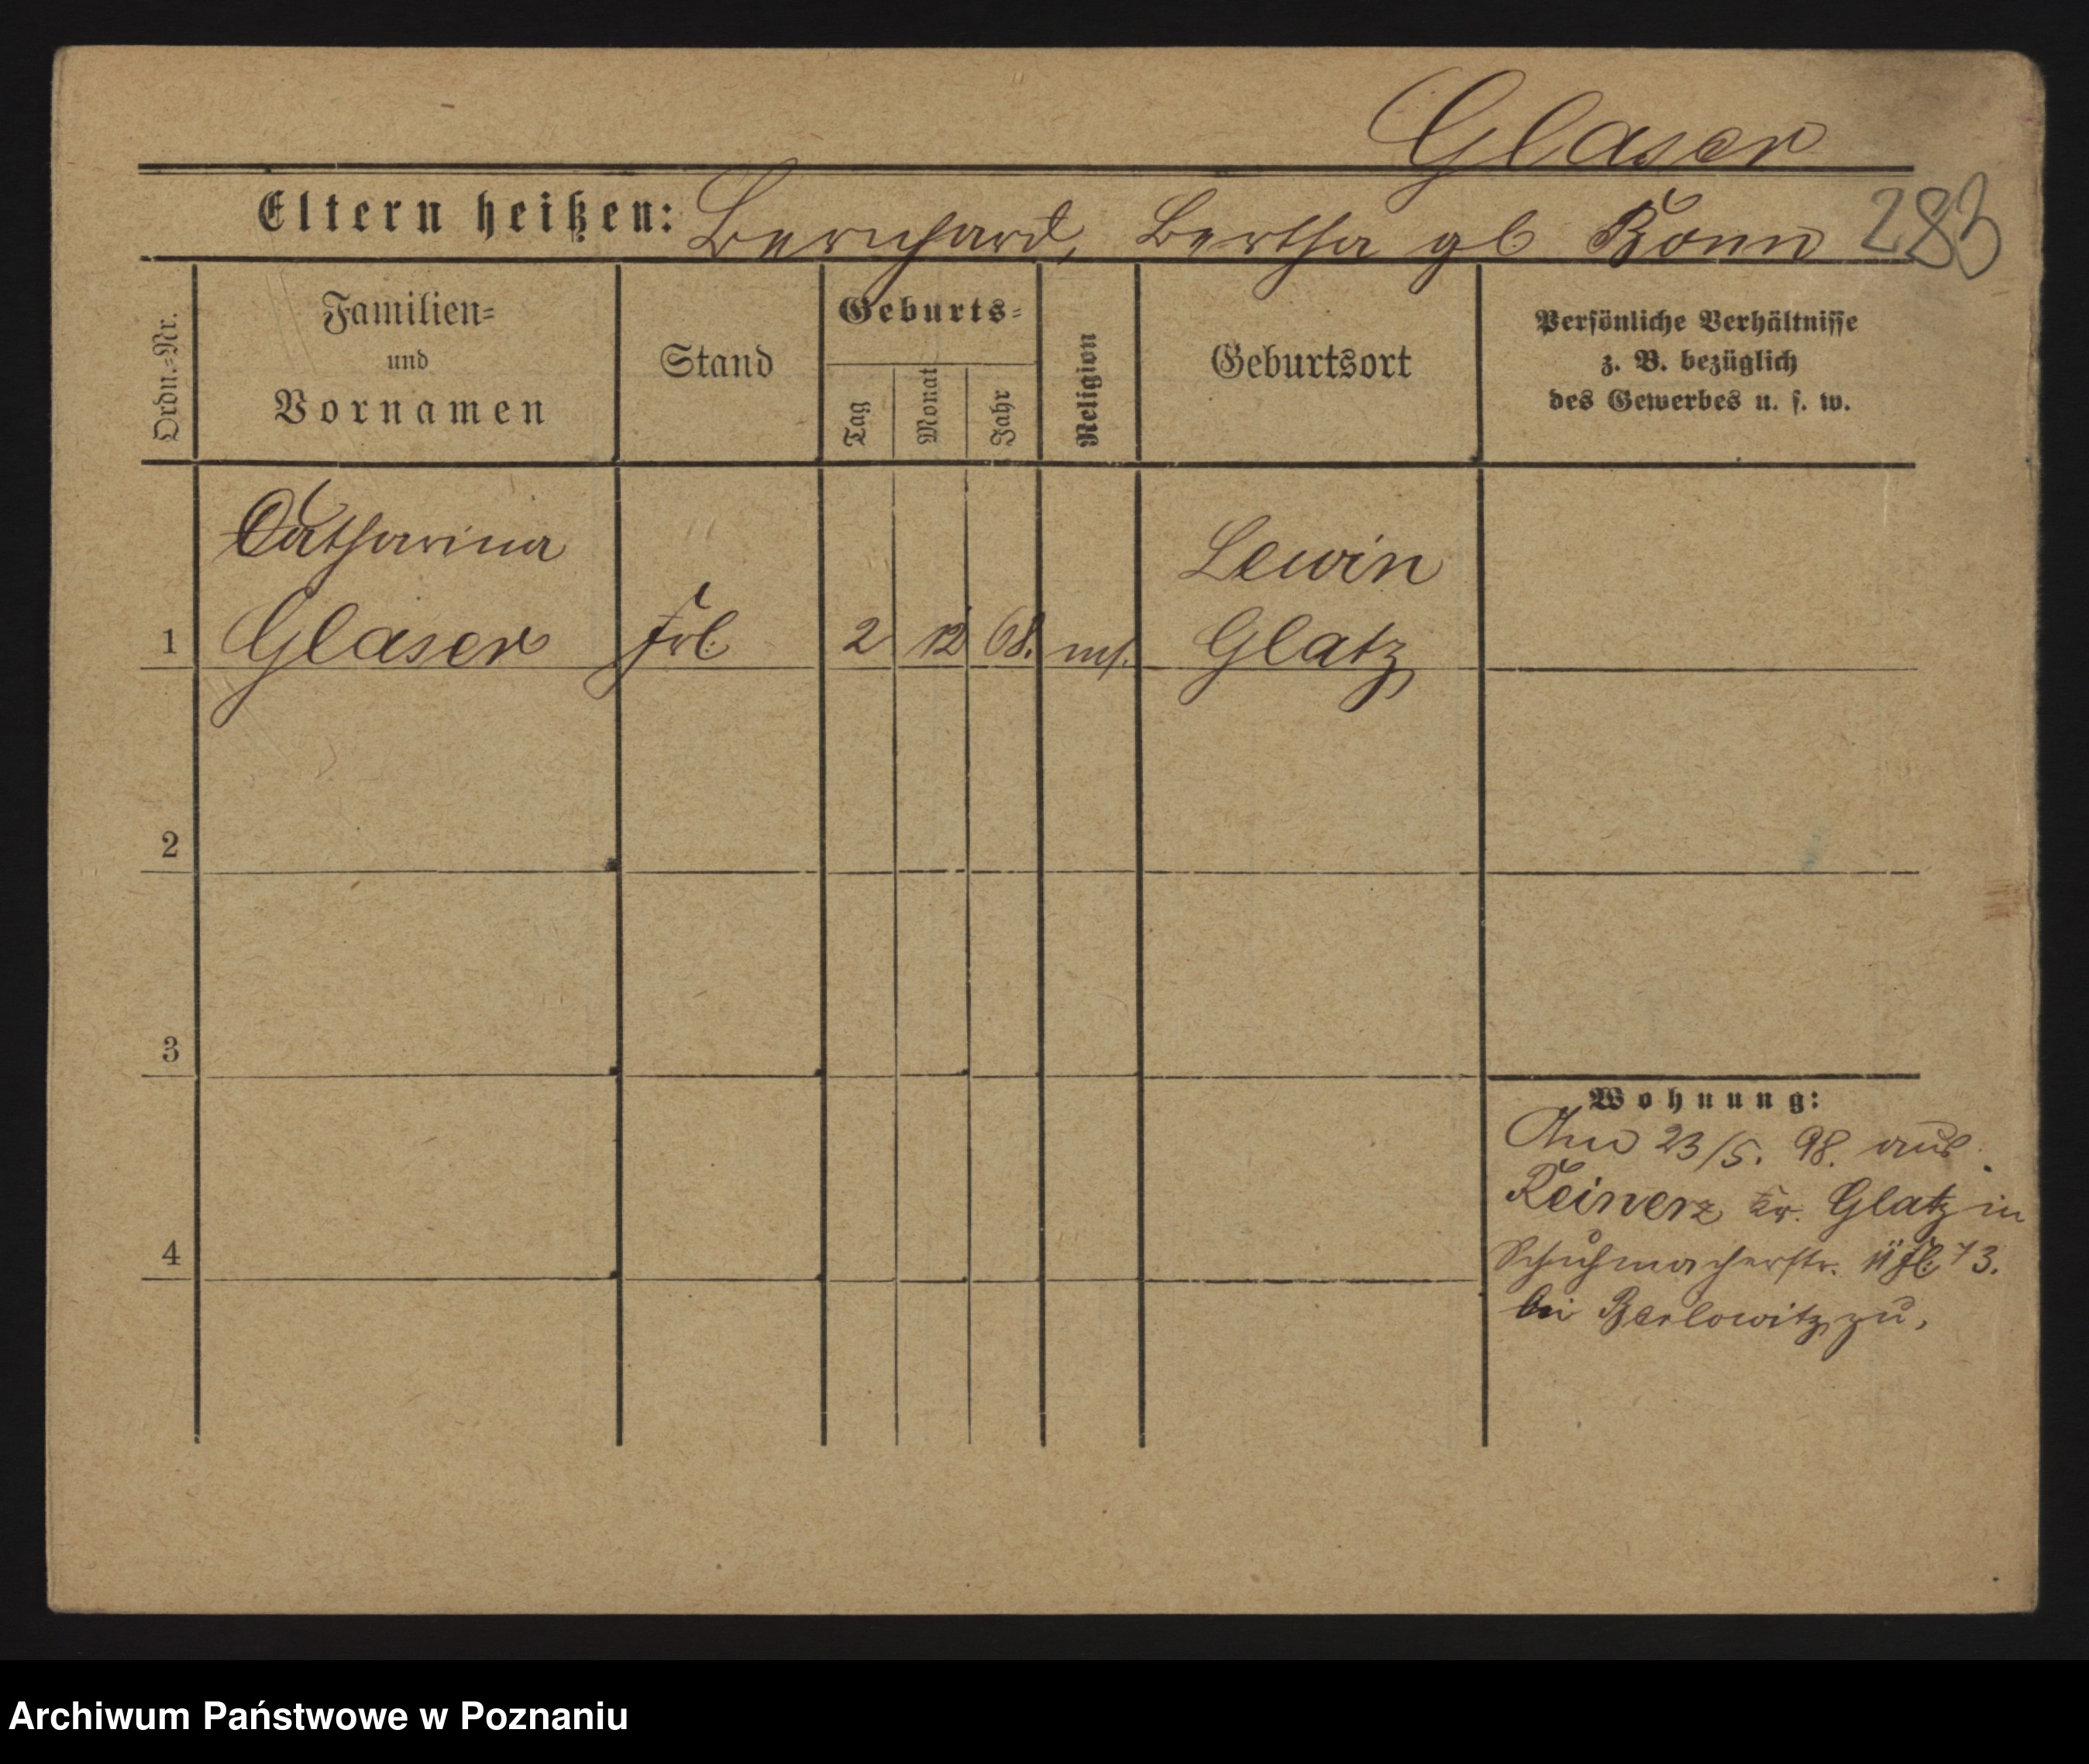 Glaser
Eltern heißen: Bernhard, Bertha gb Bonn
283
Ordn.-Nr.
Familien-
und
Vornamen
Stand
Geburts-
Tag
Monat
Jahr
Religion
Geburtsort
Persönliche Verhältnisse
z. B. bezüglich
des Gewerbes u. s. w.
Catharina
Lewin
1 Glaser Frl. 2 12 68. Glatz
2
3
4
Wohnung:
Am 23/5. 98. aus
Reinerz Kr. Glatz in
Schuhmacherstr. 13.
bei Barlowitz zu.
Archiwum Państwowe w Poznaniu